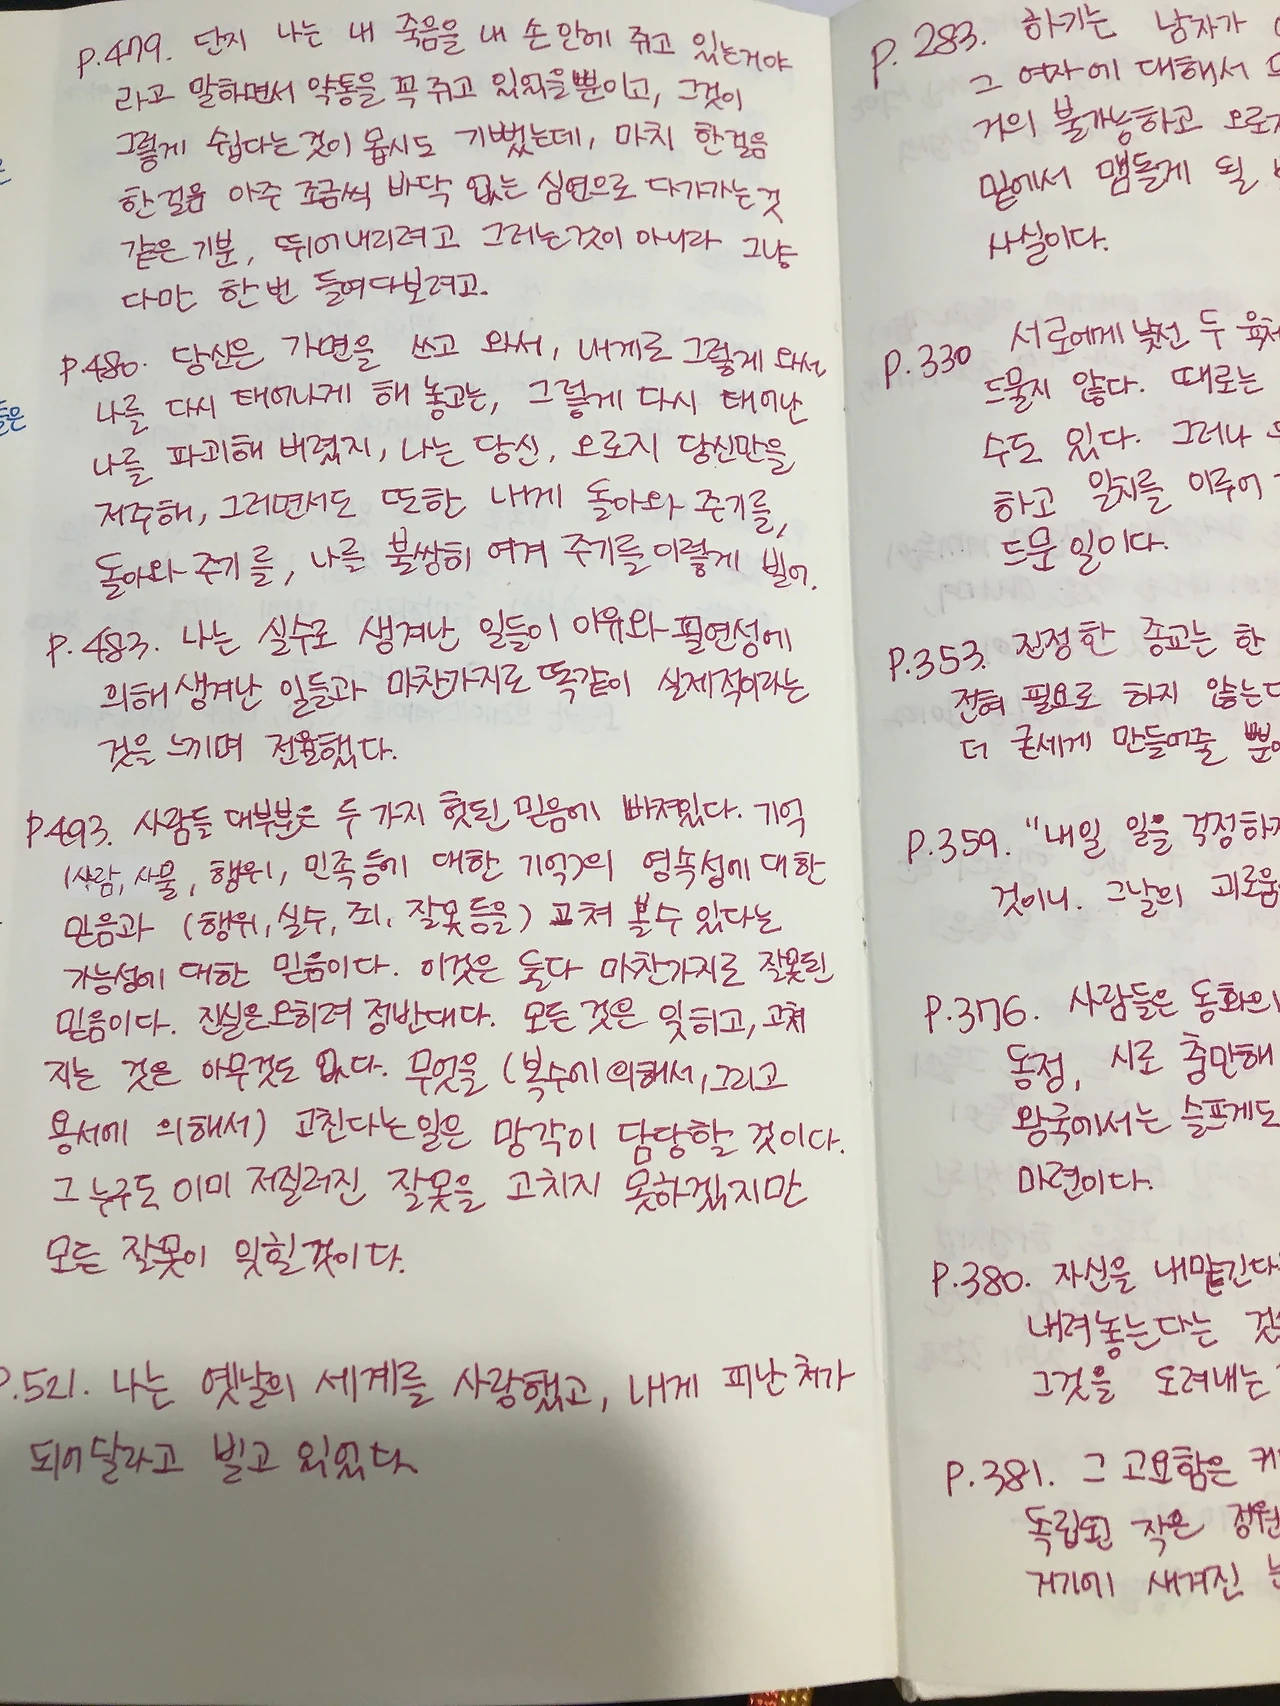 P.479. 단지 나는 내 죽음을 내 손안에 쥐고 있는거야
라고 말하면서 약통을 꼭 쥐고 있었을뿐이고, 그것이
그렇게 쉽다는것이 몹시도 기뻤는데, 마치 한걸음
한걸음 아주 조금씩 바닥 없는 심연으로 다가가는것
같은 기분, 뛰어내리려고 그러는것이 아니라 그냥
다만 한번 들여다보려고.
P.480. 당신은 가면을 쓰고 와서, 내게로 그렇게 와서,
나를 다시 태어나게 해 놓고는, 그렇게 다시 태어난
나를 파괴해 버렸지, 나는 당신, 오로지 당신만을
저주해, 그러면서도 또한 내게 돌아와 주기를,
돌아와 주기를, 나를 불쌍히 여겨 주기를 이렇게 빌어.
P. 483. 나는 실수로 생겨난 일들이 이유와 필연성에
의해 생겨난 일들과 마찬가지로 똑같이 실제적이라는
것을 느끼며 전율했다.
P.493. 사람들 대부분은 두 가지 헛된 믿음에 빠져있다. 기억
(사람, 사물, 행위, 민족등에 대한 기억)의 영속성에 대한
믿음과 (행위, 실수, 죄, 잘못 등을) 고쳐 볼수 있다는
가능성에 대한 믿음이다. 이것은 둘다 마찬가지로 잘못된
믿음이다. 진실은 오히려 정반대다. 모든 것은 잊히고, 고쳐
지는 것은 아무것도 없다. 무엇을 (복수에 의해서, 그리고
용서에 의해서) 고친다는 일은 망각이 담당할 것이다.
그 누구도 이미 저질러진 잘못을 고치지 못하겠지만
모든 잘못이 잊힐 것이다.
P.521. 나는 옛날의 세계를 사랑했고, 내게 피난처가
되어달라고 빌고 있었다
P. 283. 하기는 남자가
그 여자에 대해서
거의 불가능하고 오로지
밑에서 맴돌게 될
사실이다.
P.330 서로에게 낯선 두 육체
드물지 않다. 때로는
수도 있다. 그러나
하고 일치를 이루어
드문 일이다.
P.353. 진정한 종교는 한
전혀 필요로 하지 않는다
더 굳세게 만들어줄 뿐
P.359. "내일 일을 걱정하지
것이니. 그날의 괴로움
P.376. 사람들은 동화의
동정, 시로 충만해
왕국에서는 슬프게도
마련이다.
P.380. 자신을 내맡긴다
내려놓는다는 것
그것을 도려내는
P.381. 그 고요함은
독립된 작은 정원
거기에 새겨진